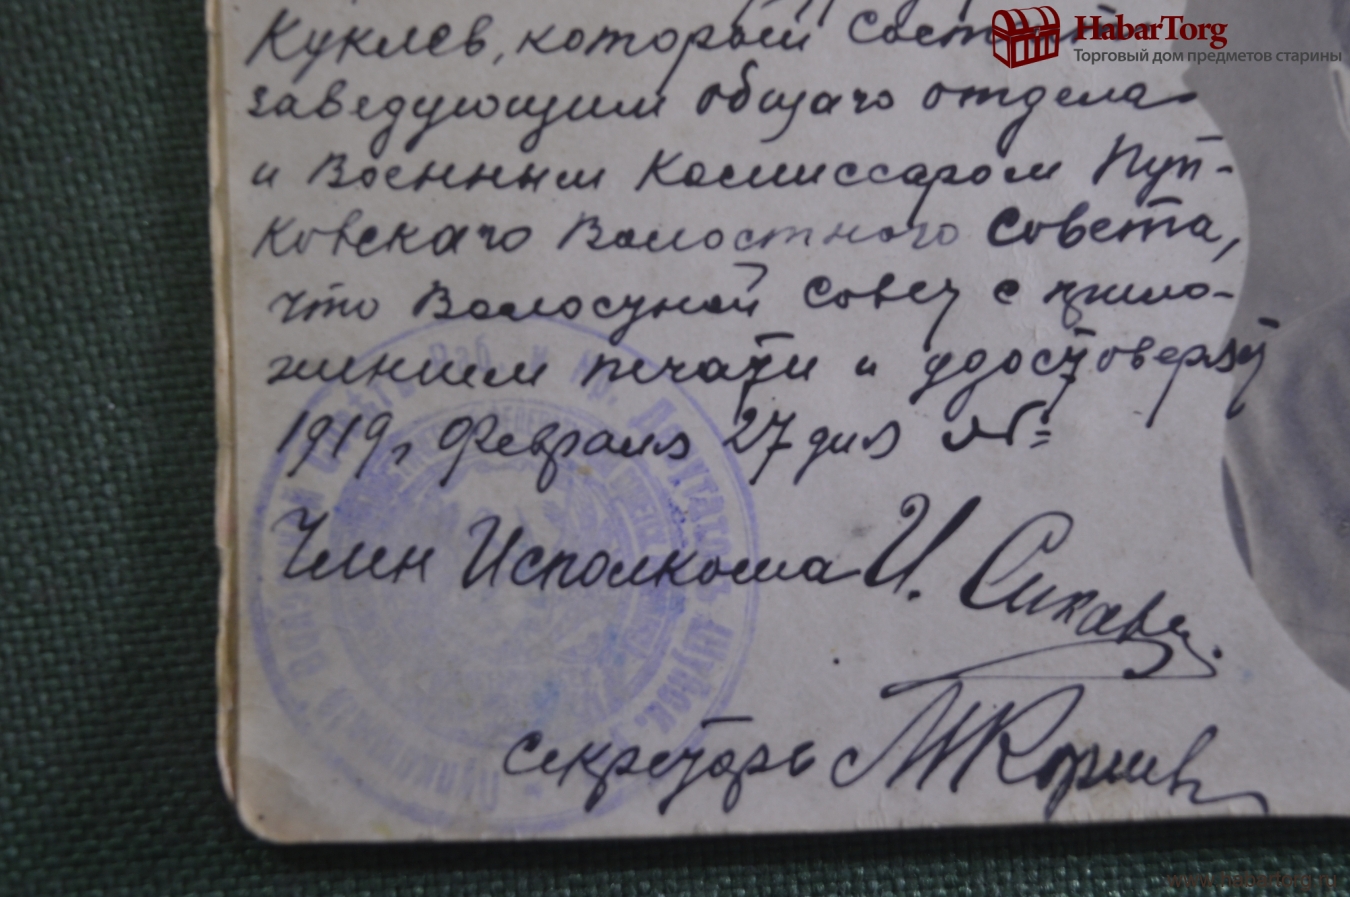 HabarTorg
Торговый дом предметов старины
Куклев, который состоит
заведующим общаго отдела
и Военным Комиссаром Пуп-
ковскаго Волостного Совета,
что Волосуной Совет с прило-
жением печати и удостоверяет
1919 г. Февраля 27 дня №
Член Исполкома И.
Секретарь
www.HabarTorg.ru